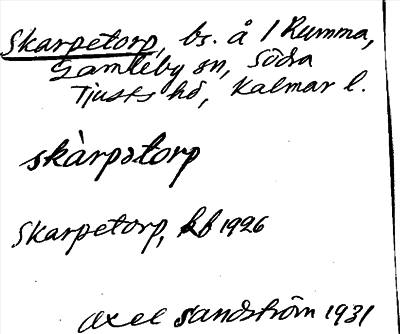 Skarpetorp, bs. å 1 Rumma,
Gamleby sn, Södra
Tjusts hd, Kalmar l.
skàrpətorp
Skarpetorp, kb 1926
Axel Sandström 1931